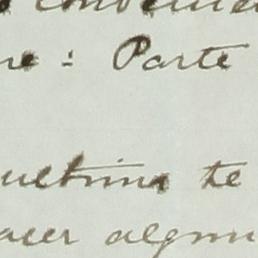 re : Parte
ultima te
acer algun